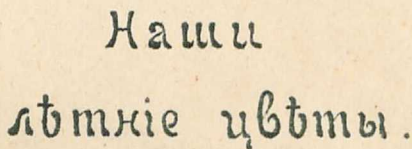 Наши
лѣтніе цвѣты.